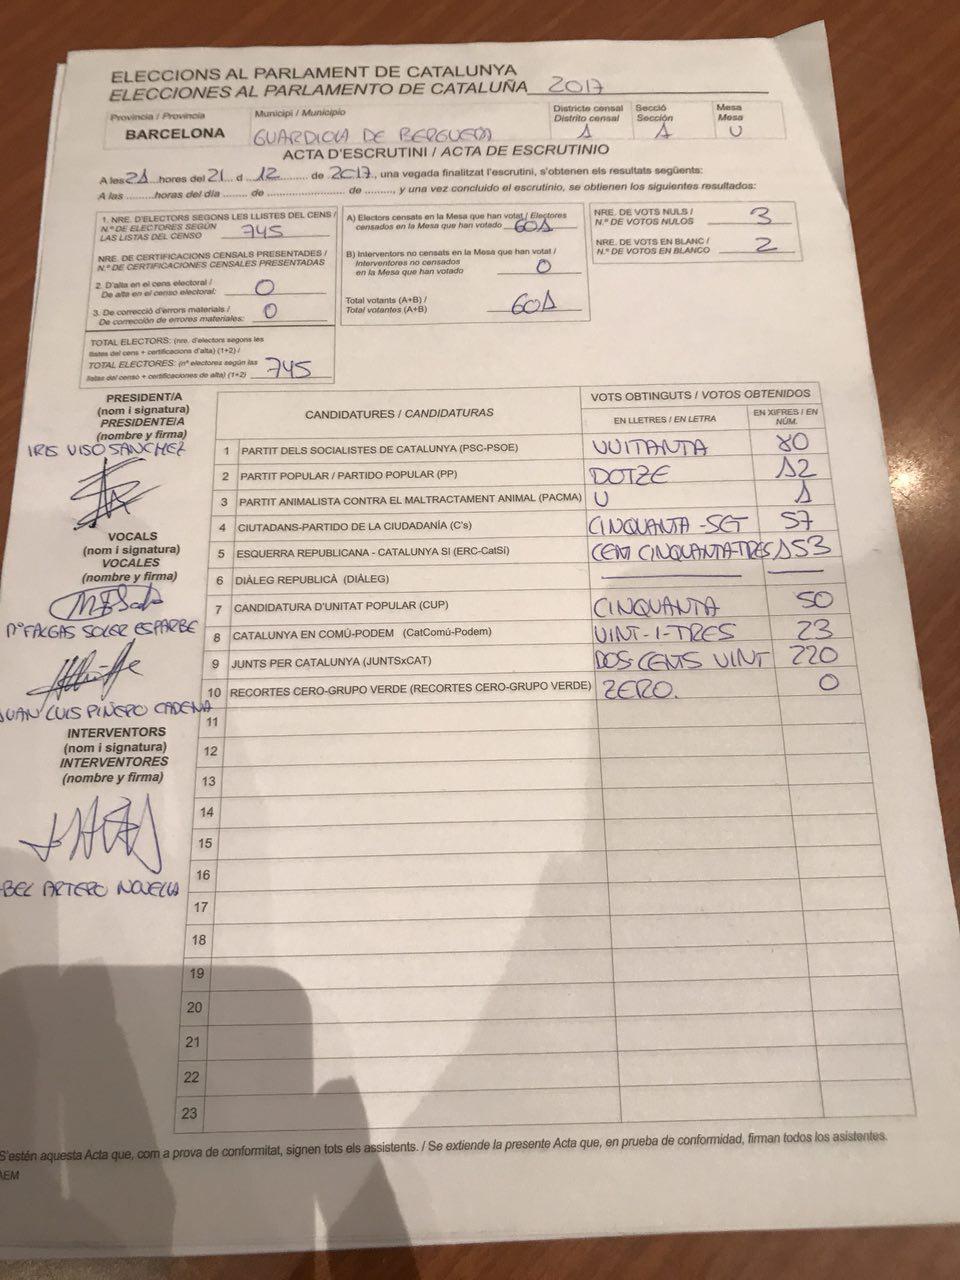 ELECCIONS AL PARLAMENT DE CATALUNYA
ELECCIONES AL PARLAMENTO DE CATALUÑA 2017
Provincia / Provincia
BARCELONA
Municipi / Municipio
GUARDIOLA DE BERGUEDA
Districte censal
Distrito censal
1
Secció
Sección
1
Mesa
Mesa
U
ACTA D'ESCRUTINI / ACTA DE ESCRUTINIO
A les 21 hores del 21 d 12 de 2017, una vegada finalitzat l'escrutini, s'obtenen els resultats següents:
A las ........ horas del día ........ de ........ de ........, y una vez concluido el escrutinio, se obtienen los siguientes resultados:
1. NRE. D'ELECTORS SEGONS LES LLISTES DEL CENS /
N.º DE ELECTORES SEGÚN
LAS LISTAS DEL CENSO 745
NRE. DE CERTIFICACIONS CENSALS PRESENTADES /
N.º DE CERTIFICACIONES CENSALES PRESENTADAS
2. D'alta en el cens electoral /
De alta en el censo electoral: 0
3. De correcció d'errors materials /
De corrección de errores materiales: 0
TOTAL ELECTORS: (nre. d'electors segons les
llistes del cens + certificacions d'alta) (1+2) /
TOTAL ELECTORES: (nº electores según las
listas del censo + certificaciones de alta) (1+2) 745
A) Electors censats en la Mesa que han votat / Electores
censados en la Mesa que han votado 601
B) Interventors no censats en la Mesa que han votat /
Interventores no censados
en la Mesa que han votado 0
Total votants (A+B) /
Total votantes (A+B) 601
NRE. DE VOTS NULS /
N.º DE VOTOS NULOS 3
NRE. DE VOTS EN BLANC /
N.º DE VOTOS EN BLANCO 2
PRESIDENT/A
(nom i signatura)
PRESIDENTE/A
(nombre y firma)
IRIS VISO SANCHEZ
VOCALS
(nom i signatura)
VOCALES
(nombre y firma)
Mª FALGAS SOLER ESPARBE
JUAN LUIS PIÑERO CADENA
INTERVENTORS
(nom i signatura)
INTERVENTORES
(nombre y firma)
BEL ARTERO NOVELLA
CANDIDATURES / CANDIDATURAS
VOTS OBTINGUTS / VOTOS OBTENIDOS
EN LLETRES / EN LETRA
EN XIFRES / EN NÚM.
1 PARTIT DELS SOCIALISTES DE CATALUNYA (PSC-PSOE) VUITANTA 80
2 PARTIT POPULAR / PARTIDO POPULAR (PP) DOTZE 12
3 PARTIT ANIMALISTA CONTRA EL MALTRACTAMENT ANIMAL (PACMA) U 1
4 CIUTADANS-PARTIDO DE LA CIUDADANÍA (C's) CINQUANTA-SET 57
5 ESQUERRA REPUBLICANA - CATALUNYA SÍ (ERC-CatSí) CENT CINQUANTA-TRES 153
6 DIÀLEG REPUBLICÀ (DIÀLEG)
7 CANDIDATURA D'UNITAT POPULAR (CUP) CINQUANTA 50
8 CATALUNYA EN COMÚ-PODEM (CatComú-Podem) VINT-I-TRES 23
9 JUNTS PER CATALUNYA (JUNTSxCAT) DOS-CENTS VINT 220
10 RECORTES CERO-GRUPO VERDE (RECORTES CERO-GRUPO VERDE) ZERO. 0
11
12
13
14
15
16
17
18
19
20
21
22
23
S'estén aquesta Acta que, com a prova de conformitat, signen tots els assistents. / Se extiende la presente Acta que, en prueba de conformidad, firman todos los asistentes.
AEM